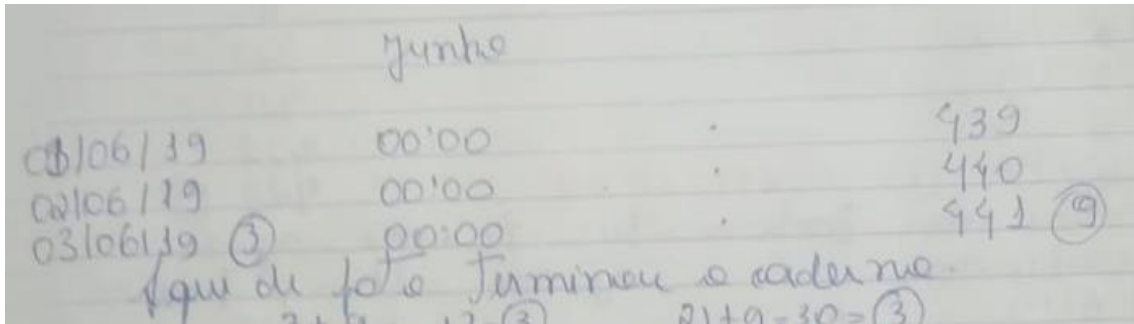 Junho
01/06/19 00:00 . 439
02/06/19 00:00 . 440
03/06/19 (3) 00:00 . 441 (9)
Aqui de fato terminou o caderno.
21+9=30=(3)